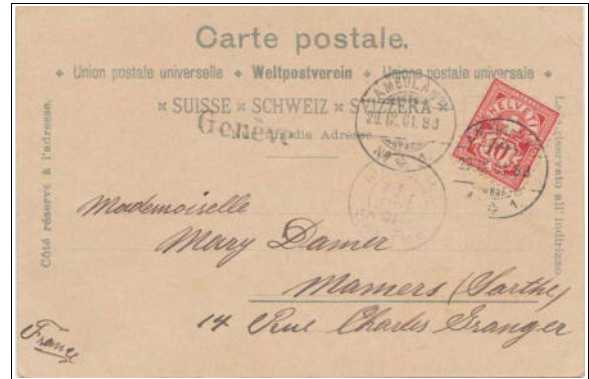 Carte postale.
Union postale universelle Weltpostverein Unione postale universale
SUISSE SCHWEIZ SVIZZERA
Genève
die Adresse
Côté réservé à l'adresse.
AMBULANT
HELVETIA
10
Lato riservato all' indirizzo.
Mademoiselle
Mary Damer
Mamers (Sarthe)
14 Rue Charles Granger
France